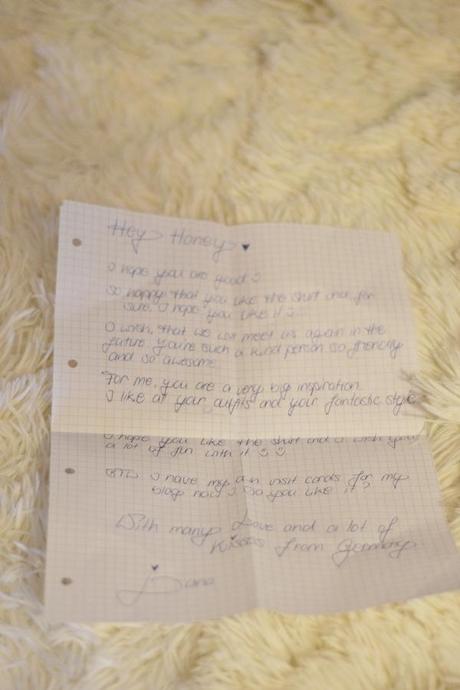 Hey Honey ♥
I hope you are good ☺
So happy that you like the shirt and for
sure. I hope you like it
I wish, that we can meet us again in the
future. you're such a kind person so friendly
and so awesome
For me, you are a very big inspiration.
I like all your outfits and your fantastic style
I hope you like the shirt and I wish you
a lot of fun with it ☺ ☺
BTW I have my own visit cards for my
blog now Do you like it?
With many Love and a lot of
Kisses from Germany
Diana